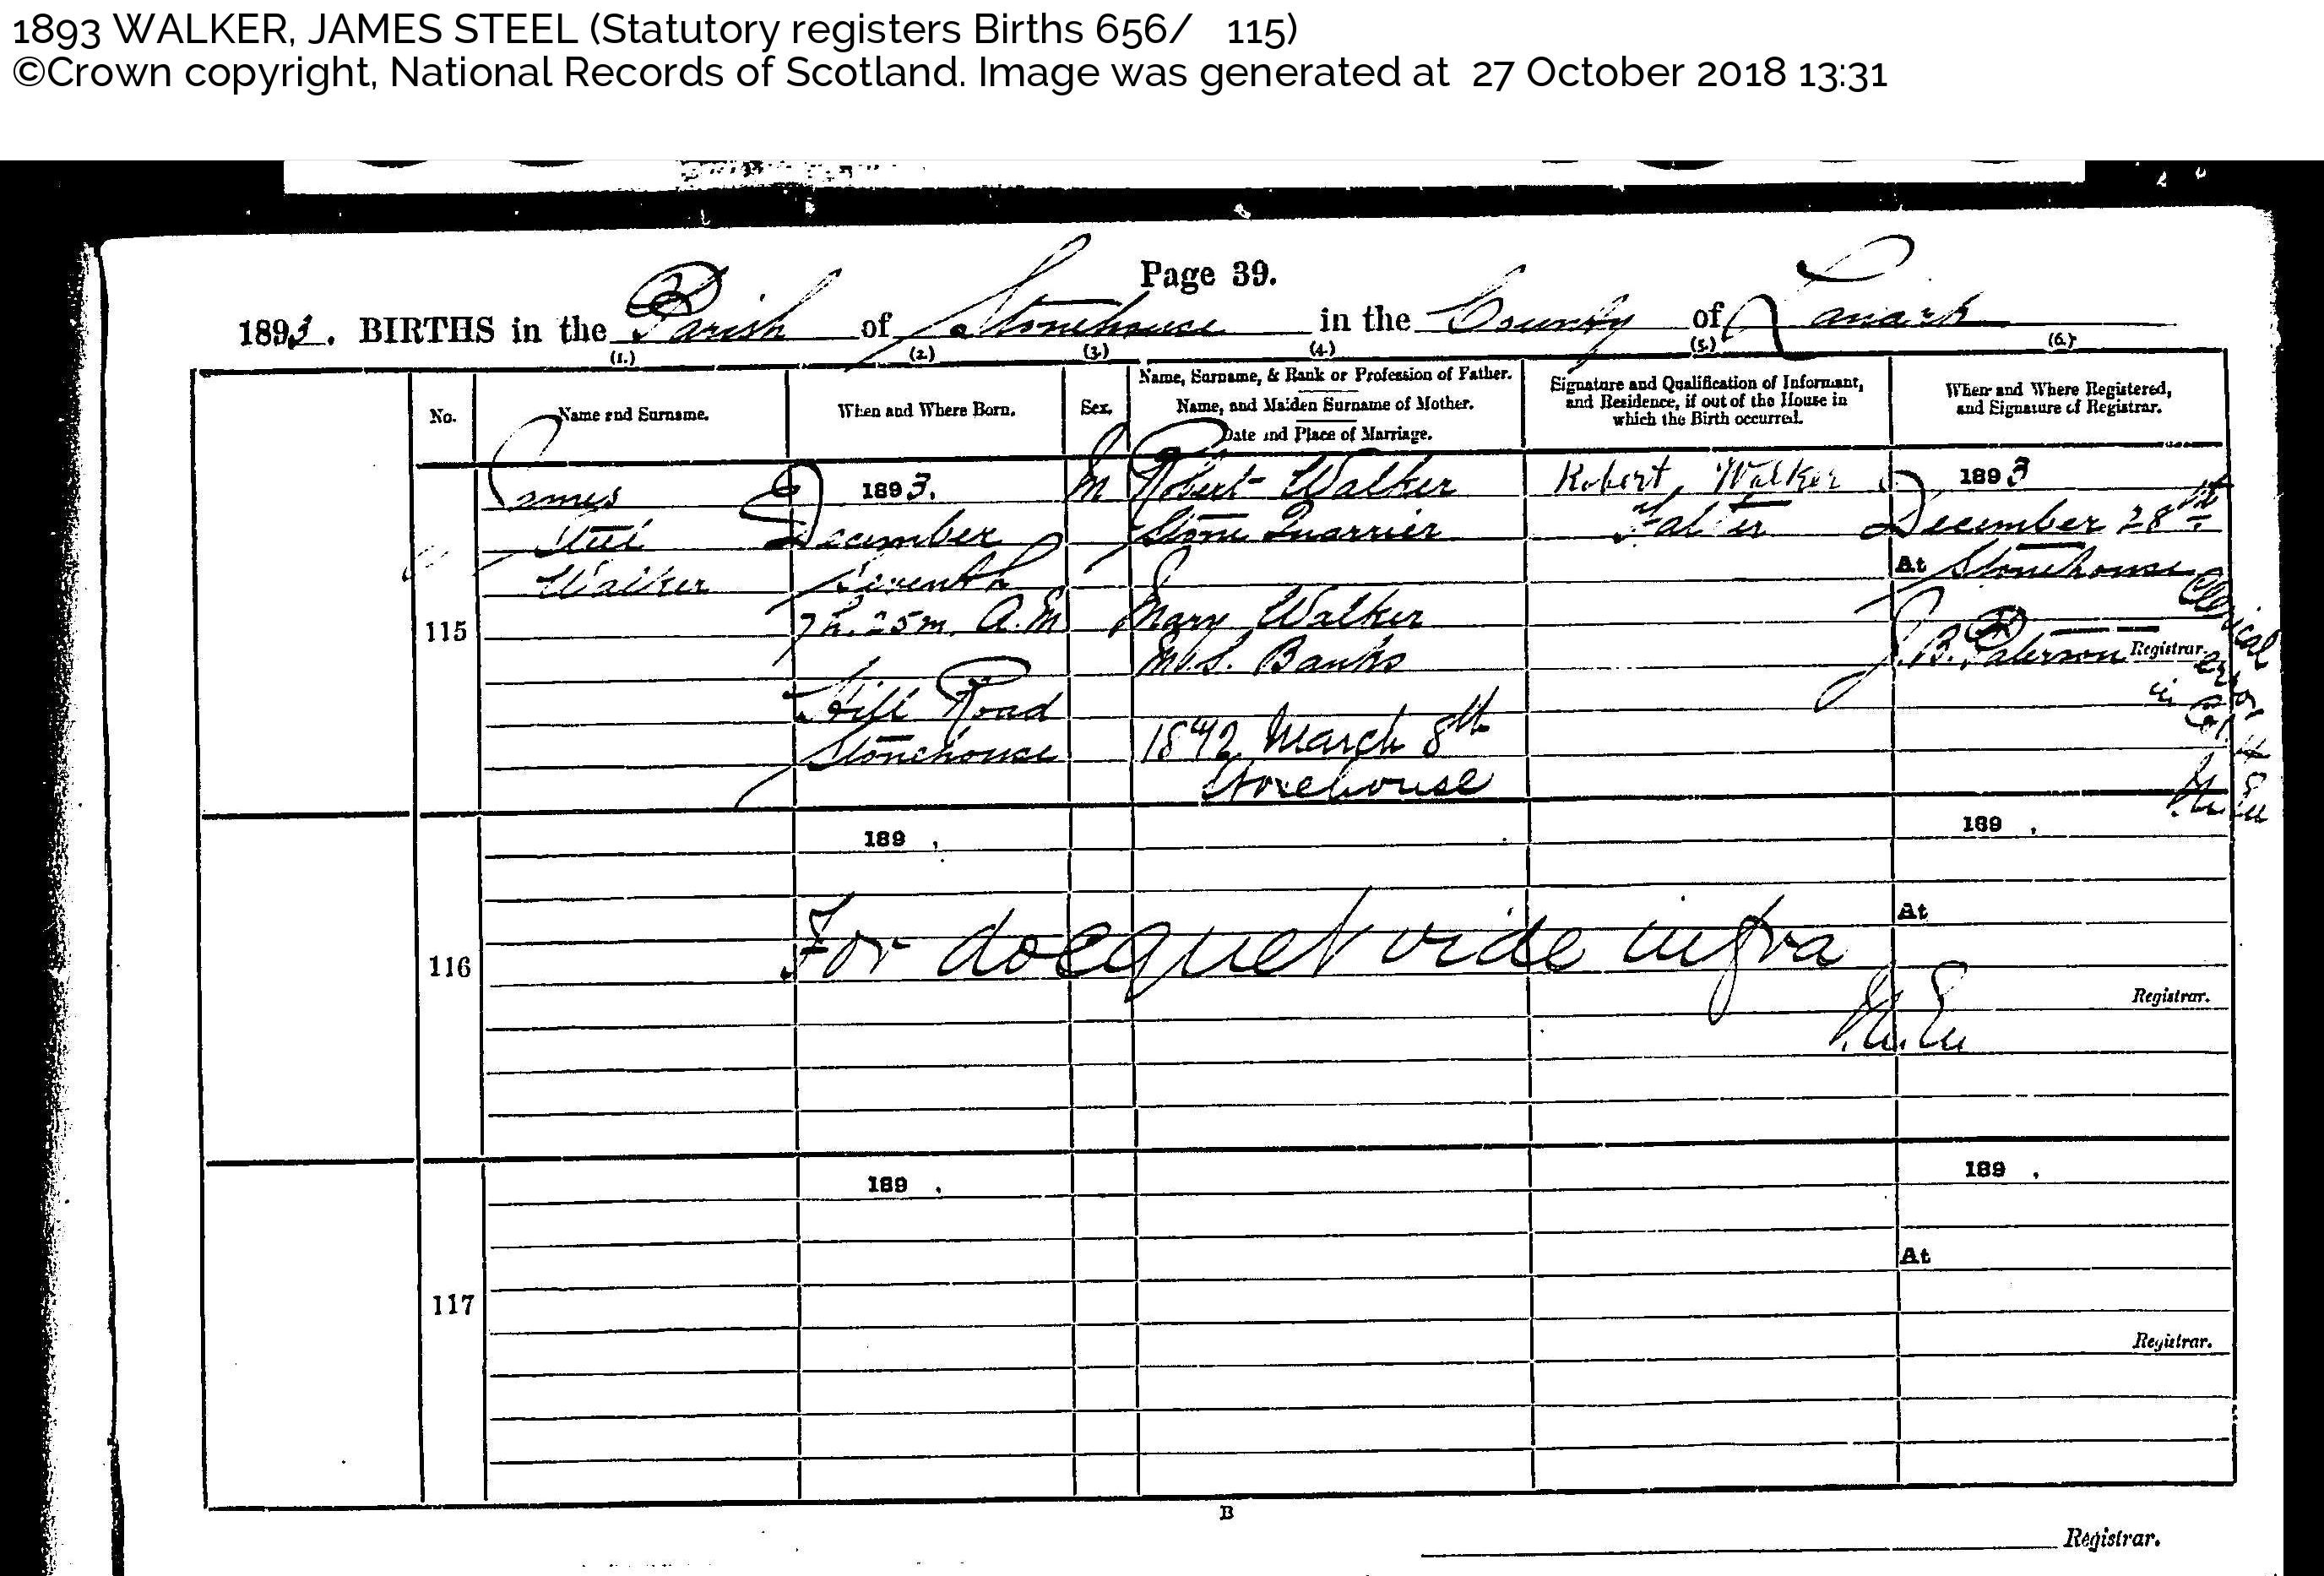 1893 WALKER, JAMES STEEL (Statutory registers Births 656/ 115)
©Crown copyright, National Records of Scotland. Image was generated at 27 October 2018 13:31
Page 39.
1893. BIRTHS in the Parish of Stonehouse in the County of Lanark
(1.) (2.) (3.) (4.) (5.) (6.)
No.
Name and Surname.
When and Where Born.
Sex.
Name, Surname, & Rank or Profession of Father.
Name, and Maiden Surname of Mother.
Date and Place of Marriage.
Signature and Qualification of Informant,
and Residence, if out of the House in
which the Birth occurred.
When and Where Registered,
and Signature of Registrar.
115
James
Steel
Walker
1893.
December
Seventh
7h. 25m. A.M
Hill Road
Stonehouse
M
Robert Walker
Stone Quarrier
Mary Walker
M.S. Banks
March 8th
Stonehouse
Robert Walker
Father
1893
December 28th
At Stonehouse
J. B. Paterson Registrar.
Clerical
error
in Col. 4
116
189 .
For docquet vide infra
189 .
At
Registrar.
117
189 .
189 .
At
Registrar.
B
Registrar.